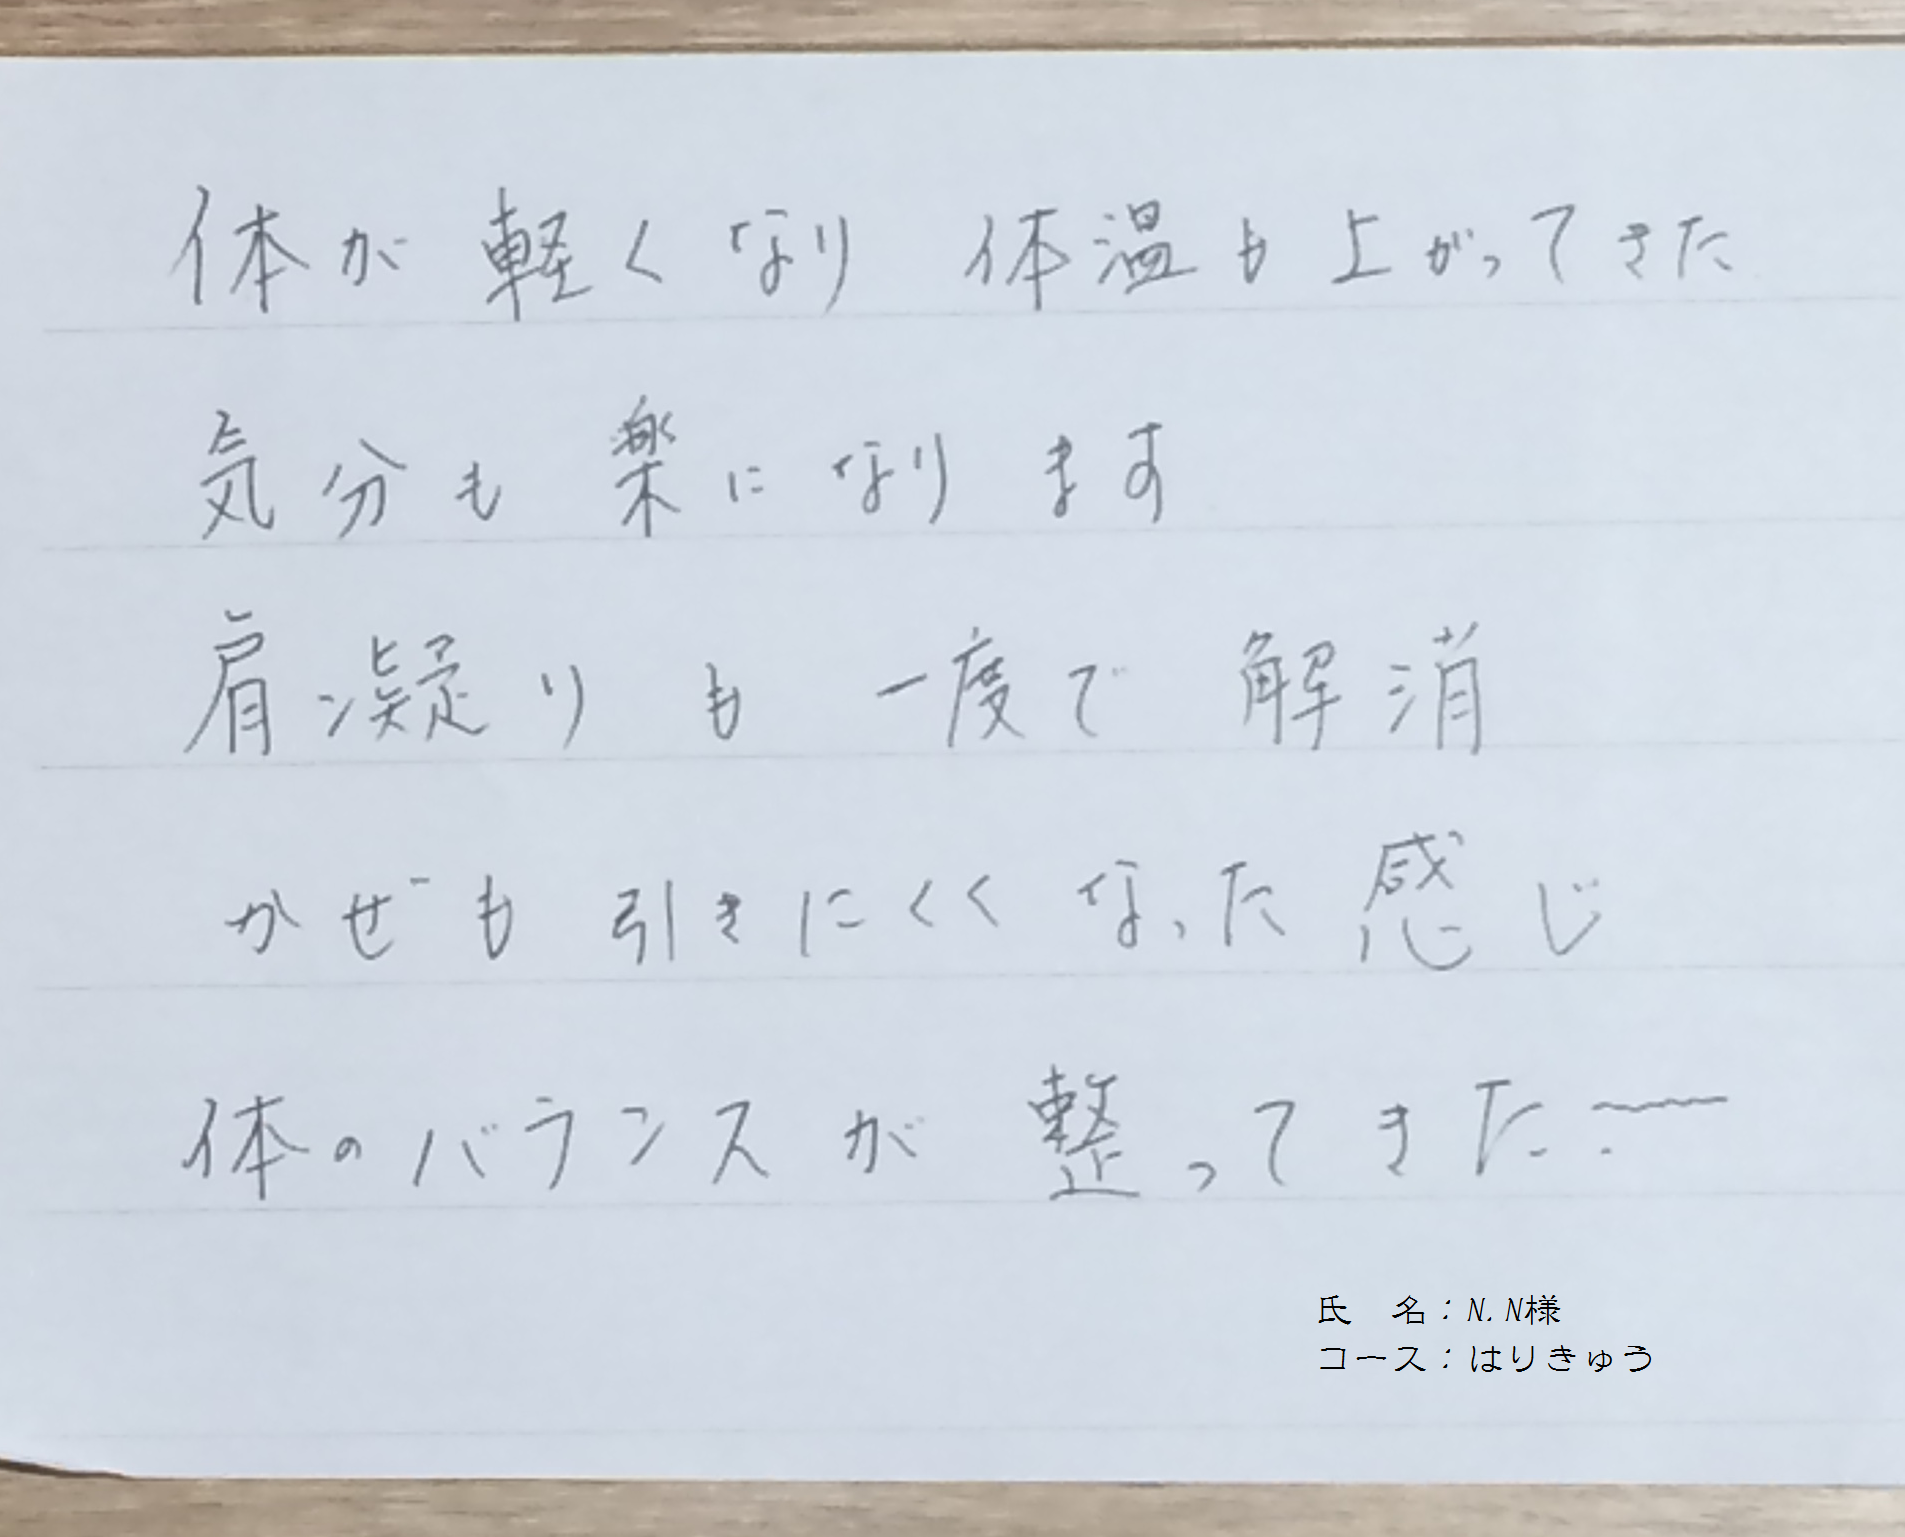 体が軽くなり 体温も上がってきた
気分も楽になります
肩凝りも一度で解消
かぜも引きにくくなった感じ
体のバランスが整ってきた〜
氏　名：N.N様
コース：はりきゅう